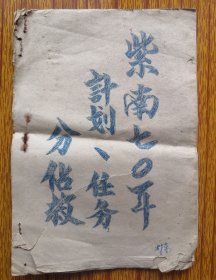 紫南七〇年
計划、任务
分佔数